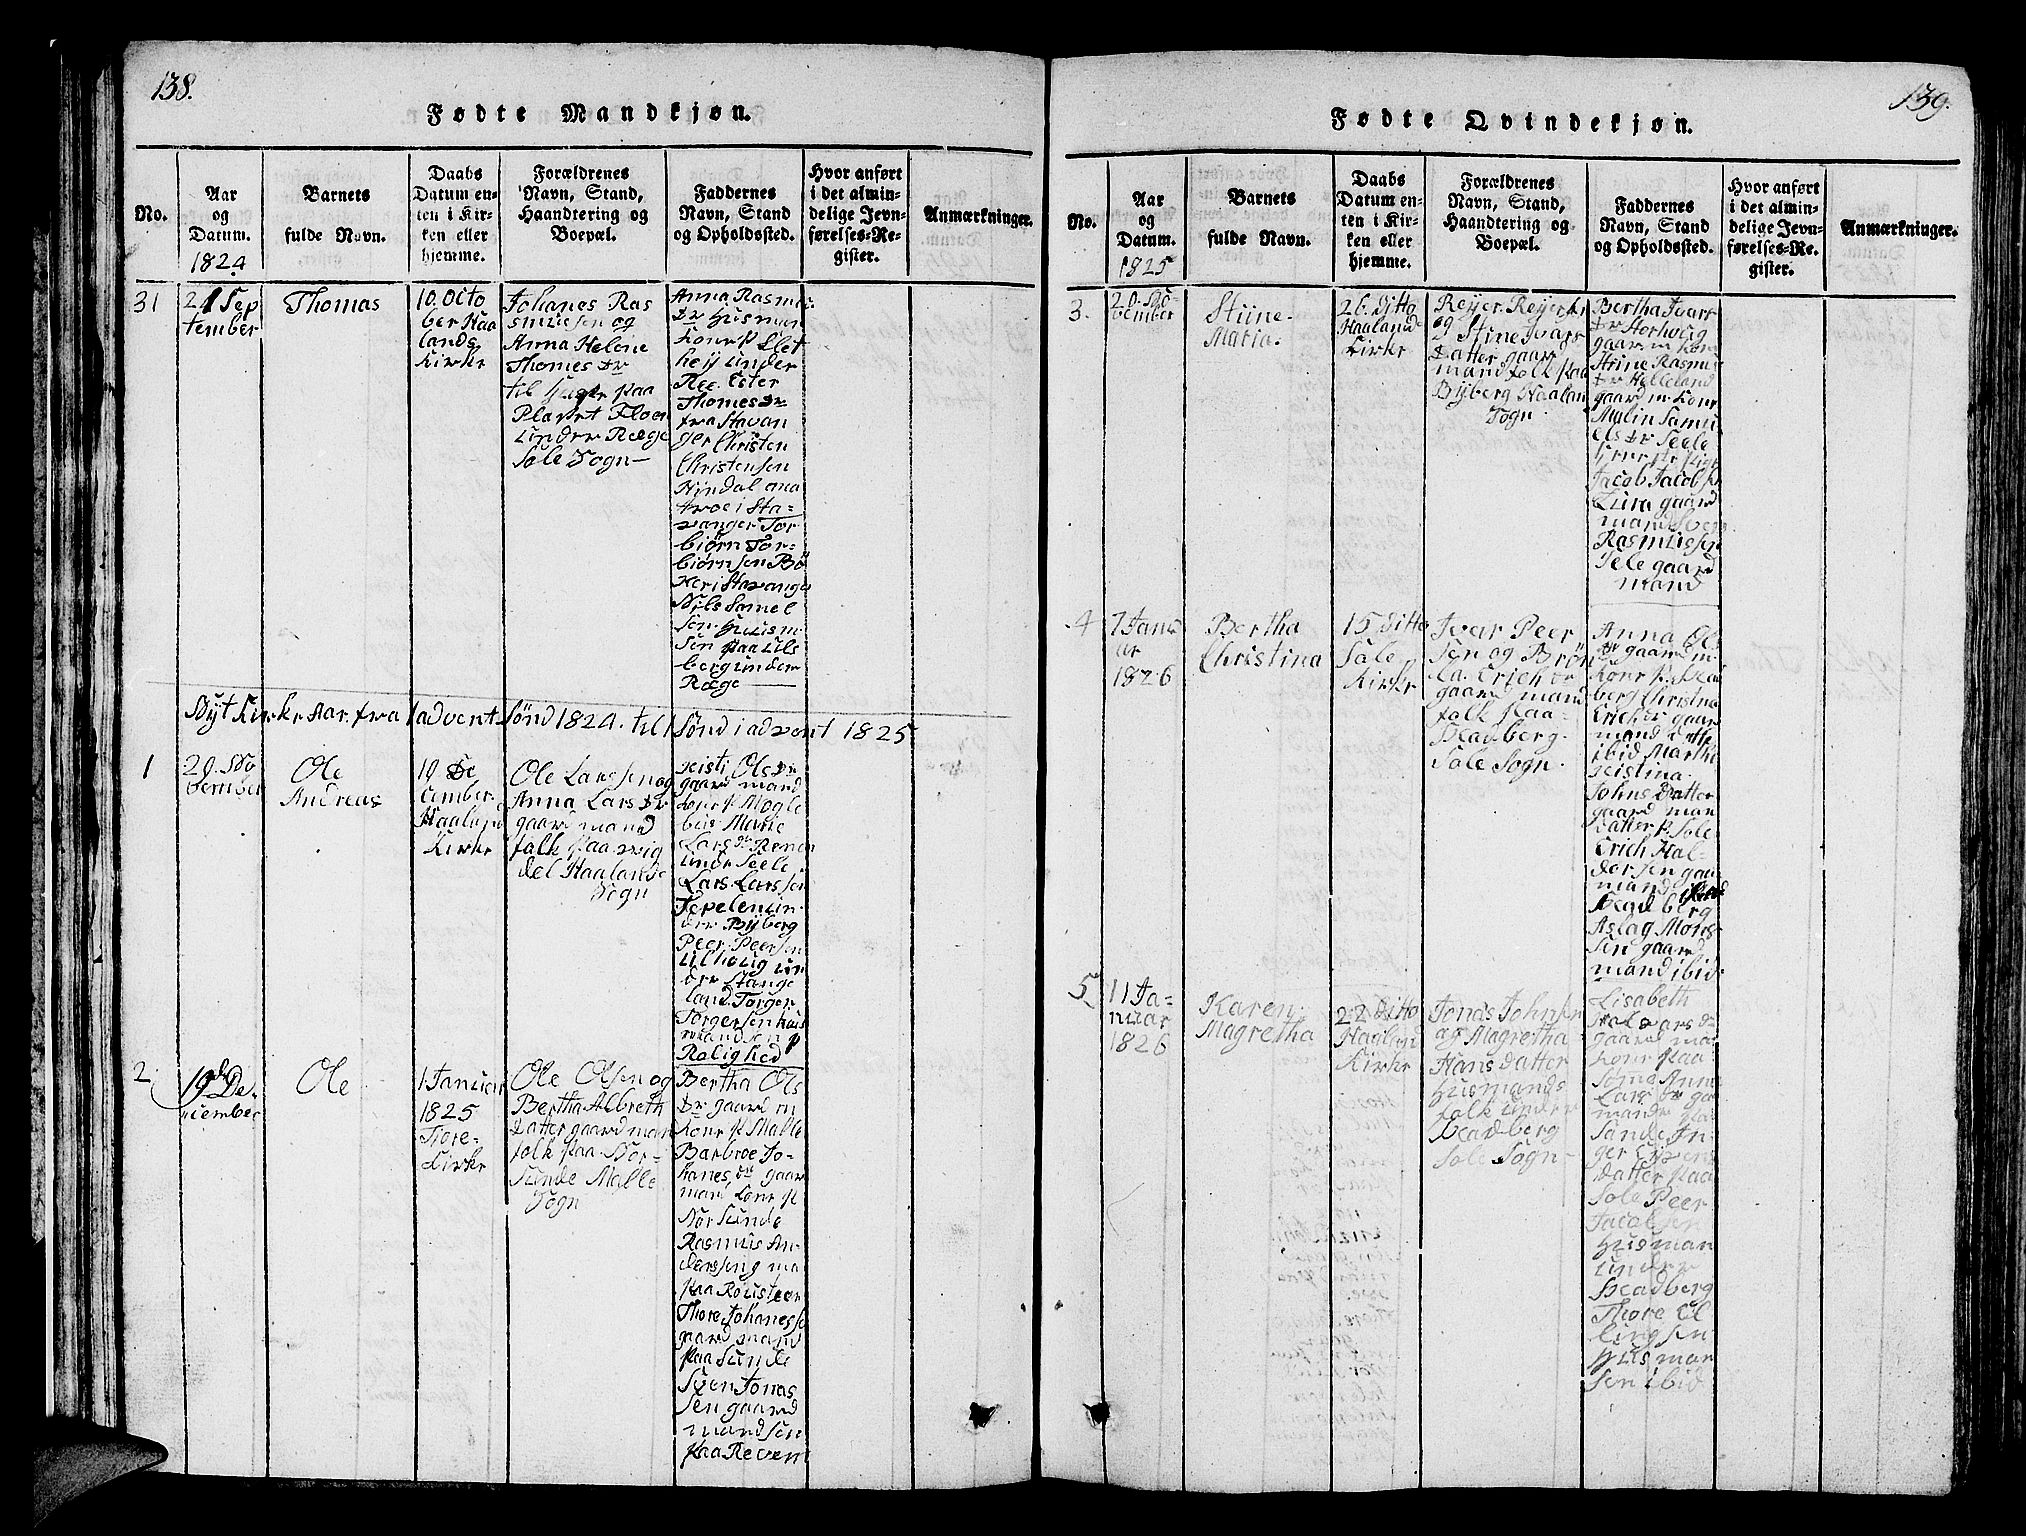 138.
Fødte Mandkjøn.
No.
Aar
og
Datum.
1824
Barnets
fulde Navn.
Daabs
Datum en-
ten i Kir-
ken eller
hjemme.
Forældrenes
Navn, Stand,
Haandtering og
Boepæl.
Faddernes
Navn, Stand
og Opholdssted.
Hvor anført
i det almin-
delige Jevn-
førelses-Re-
gister.
Anmærkninger.
31
21 Sep
tember
Thomas
10. Octo
ber Haa
lands
Kirke
Johanes Ras
musen og
Anna Helene
Thomes Dr
paa
Plasset
under Ræge
Sole Sogn
Anna Rasmus
Dr Husman
Kone p Slet
hey under
Ree. Ester
Thomes Dr
fra Stavan
ger Christen
Christensen
Hindal ma
troe i Sta-
vanger Tor
biørn Tor-
biørnsen Bö
ker i Stavange
Nils Samel
sen Huusm
Sen paa Lils
berg under
Ræge
Nyt Kirke Aar. fra 1 advent Sønd 1824. til 1 Sønd i advent 1825
1
29. No
vember
Ole
Andreas
19 De
cember
Haaland
Kirke
Ole Larssen og
Anna Lars Dr
gaard mand
folk paa
del Haalands
Sogn
Kisti Ols Dr
gaard mand
kone p Mogle
bus Marie
Lars Dr
under Seele
Lars Larssen
under Byberg
Peer Peersen
Lilhoug un
der Stange
land Torger
Torgersen huus
mandsen p
Rolighed
2
19 De-
cember
Ole
1 Januar
1825
Tiore-
Kirke
Ole Olsen og
Bertha Albreth
Datter gaard man
folk paa Nor-
Sunde Malle
Sogn
Bertha Ols
Dr gaard m
kone p Malle
Barbroe Jo-
hanes Dr gaar
mand kone p
Nor Sunde
Rasmus An-
derssen g ma
paa
Thore Johanesse
gaard mand
paa Sunde
Sven Jonas
sen gaard
mandsen
paa Revem
139.
Fødte Qvindekjøn.
No.
Aar
og
Datum.
1825
Barnets
fulde Navn.
Daabs
Datum en-
ten i Kir-
ken eller
hjemme.
Forældrenes
Navn, Stand,
Haandtering og
Boepæl.
Faddernes
Navn, Stand
og Opholdssted.
Hvor anført
i det almin-
delige Jevn-
førelses-Re-
gister.
Anmærkninger.
3.
20. No-
vember
Stiine
Maria.
26 Ditto
Haaland
Kirke
Reyer Reyers
og Stine Ivars
Datter gaar
mand folk paa
Byberg Haalan
Sogn
Bertha Ivars
Dr Storhoug
gaar m kone
Stiine Rasmus
Dr Helleland
gaard m kone
Malin Samu
els Dr Seele
Jacob Jacobs
Lura gaard
mand Sven
Rasmussen
Sele gaard
mand
4
7 Janu
ar
1826
Bertha
Christina
15 Ditto
Sole
Kirke
Ivar Peer
Sen og Brön
la Erich Dr
gaard mand
folk paa
Meadberg
Sole Sogn
Anna Ols
Dr gaard m
kone p Mea
berg Christina
Erich Dr gaar
mand Datter
ibid Martha
Kistina
Johns Datter
gaard man
Datter p. Sole
Erich Hal-
dorsen gaar
mand
Mead berg
Aslag Mons
sen gaard
mand ibid
5
11 Ja-
nuar
1826
Karen
Magretha
22 Ditto
Haaland
Kirke
Jonas Johnsen
og Magretha
Hans Datter
Husmands
folk under
Meadberg
Sole Sogn
Lisabeth
Halvars Dr
gaard ma
kone paa
Sømø Anne
Lars Dr ga
mands
Sande In-
ger
Datter paa
Sole Peer
Jacobsen
Husman
under
Meadberg
Thore El
lingsen
Husman
Sen ibid